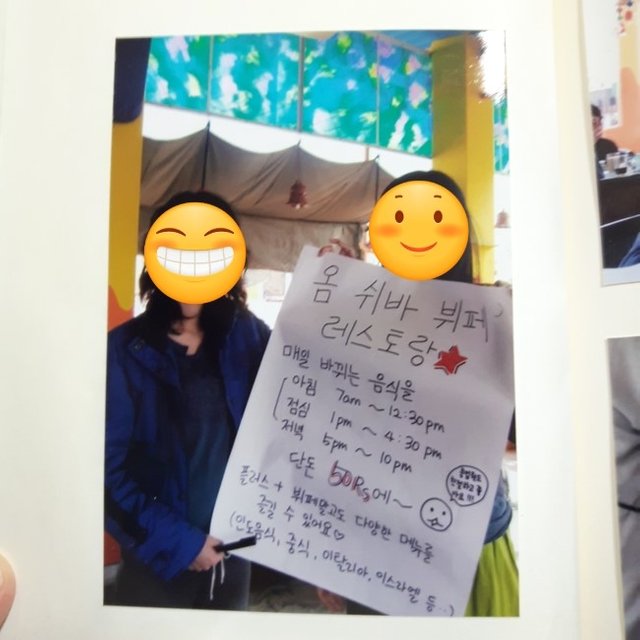 옴 쉬바 뷔페
레스토랑
매일 바뀌는 음식을
아침 7am ~ 12:30pm
점심 1pm ~ 4:30pm
저녁 5pm ~ 10pm
단돈 60Rs에~
플러스 + 뷔페말고도 다양한 메뉴를
즐길 수 있어요♡
(인도음식, 중식, 이탈리아, 이스라엘 등..)